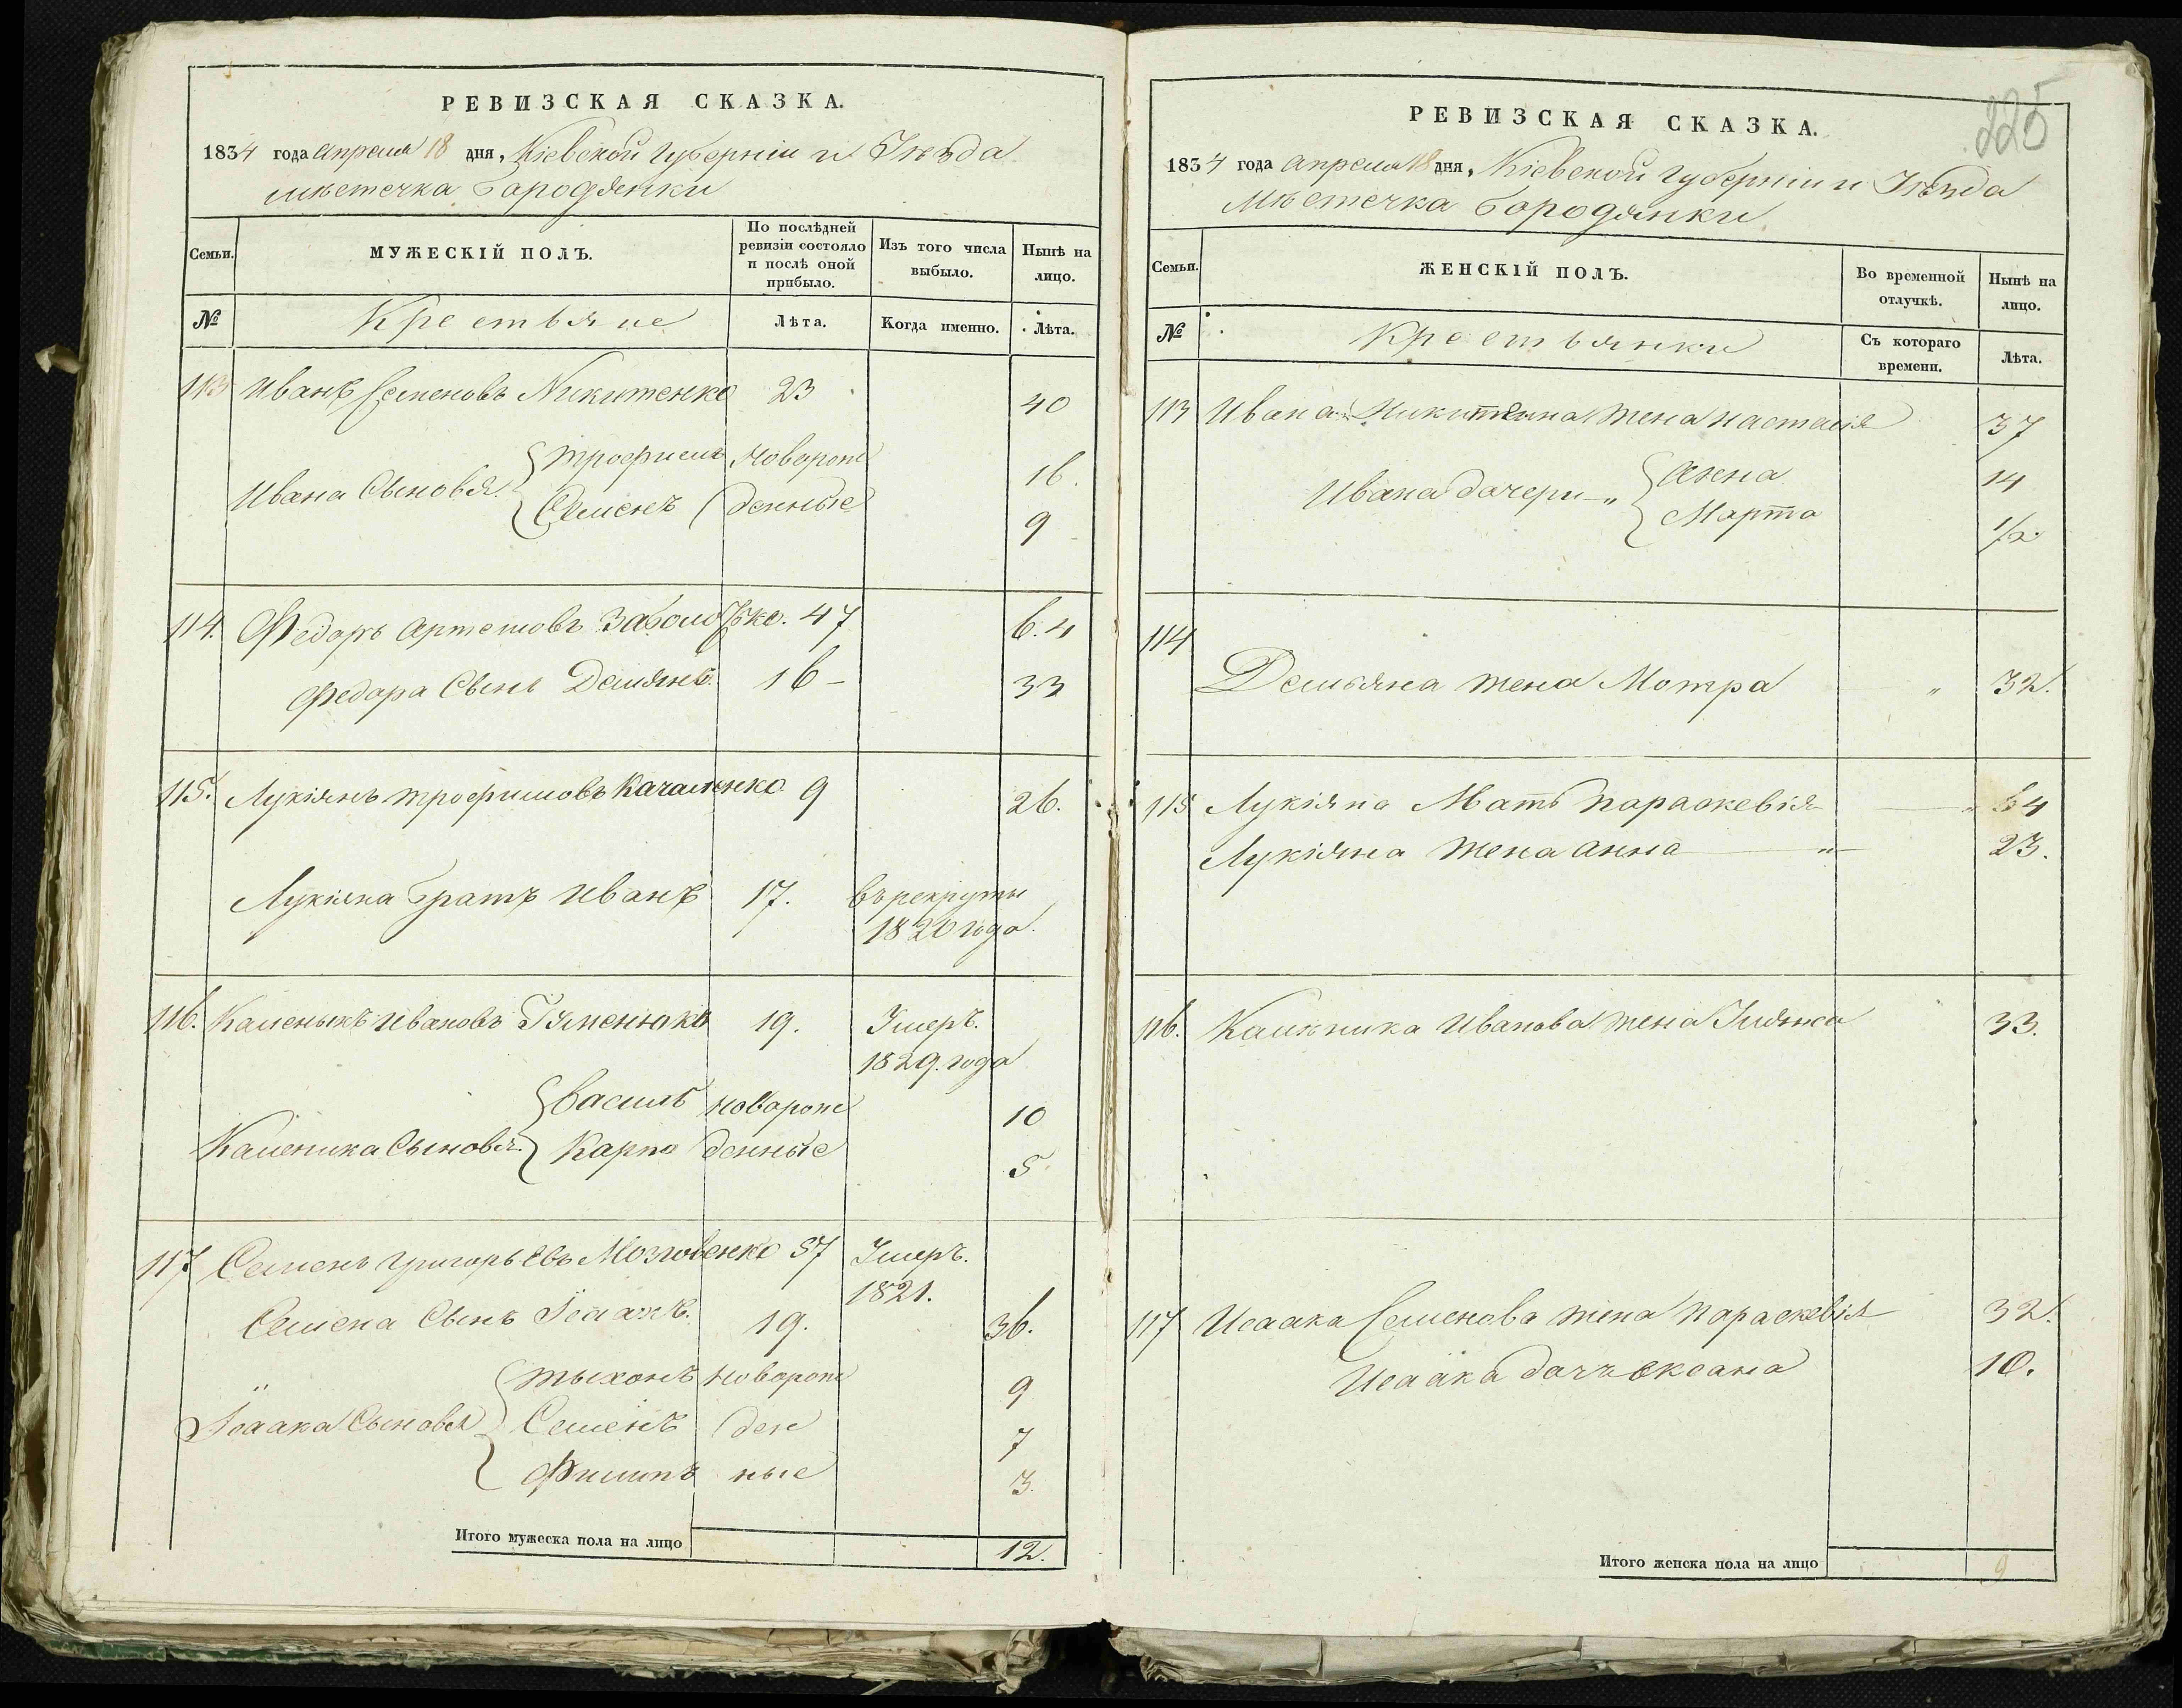 РЕВИЗСКАЯ СКАЗКА.
1834 года апреля 18 дня, Кіевской губерніи и Уѣзда
мѣстечка Бородянки
Семьи.
МУЖЕСКІЙ ПОЛЪ.
По послѣдней ревизіи состояло и послѣ оной прибыло.
Изъ того числа выбыло.
Нынѣ на лицо.
№ Крестьяне Лѣта. Когда именно. Лѣта.
113 Иванъ Семеновъ Никитенко 23 40
Трофимъ новорож 16.
Ивана Сыновья
Семенъ денные 9
114. Федоръ Артемовъ 47 64
Федора Сынъ Демянъ. 16 33
115. Лукіянъ Трофимовъ Качаленко 9 26.
Лукіяна Братъ Иванъ 17. въ рекруты
1820 года.
116. Каленикъ Ивановъ 19. Умеръ.
1829. года
Василь новорож 10
Каленика Сыновья
Карпо денные 5
117 Семенъ Григорьевъ Мозговенко 57 Умеръ.
1821.
Семена Сынъ Ісаакъ. 19. 36.
Тыхонъ новорож 9
Ісаака Сыновья Семенъ ден 7
Филипъ ные 3.
Итого мужеска пола на лицо 12.
225
РЕВИЗСКАЯ СКАЗКА.
1834 года апреля 18 дня, Кіевской губерніи и Уѣзда
Мѣстечка Бородянки
Семьи.
ЖЕНСКІЙ ПОЛЪ.
Во временной отлучкѣ.
Нынѣ на лицо.
№ Крестьянки Съ котораго времени. Лѣта.
113 Ивана Никитина жена Настасія 37
Анна 14
Ивана дочери
Марта 1/2
114
Демьяна жена Мотра " 32.
115 Лукіяна Мать Параскевія " 64
Лукіяна жена Анна " 23.
116. Каленика Иванова жена Ульяна 33.
117 Исаака Семенова жена Параскевія 32.
Исаака дочь Оксана 10.
Итого женска пола на лицо 9